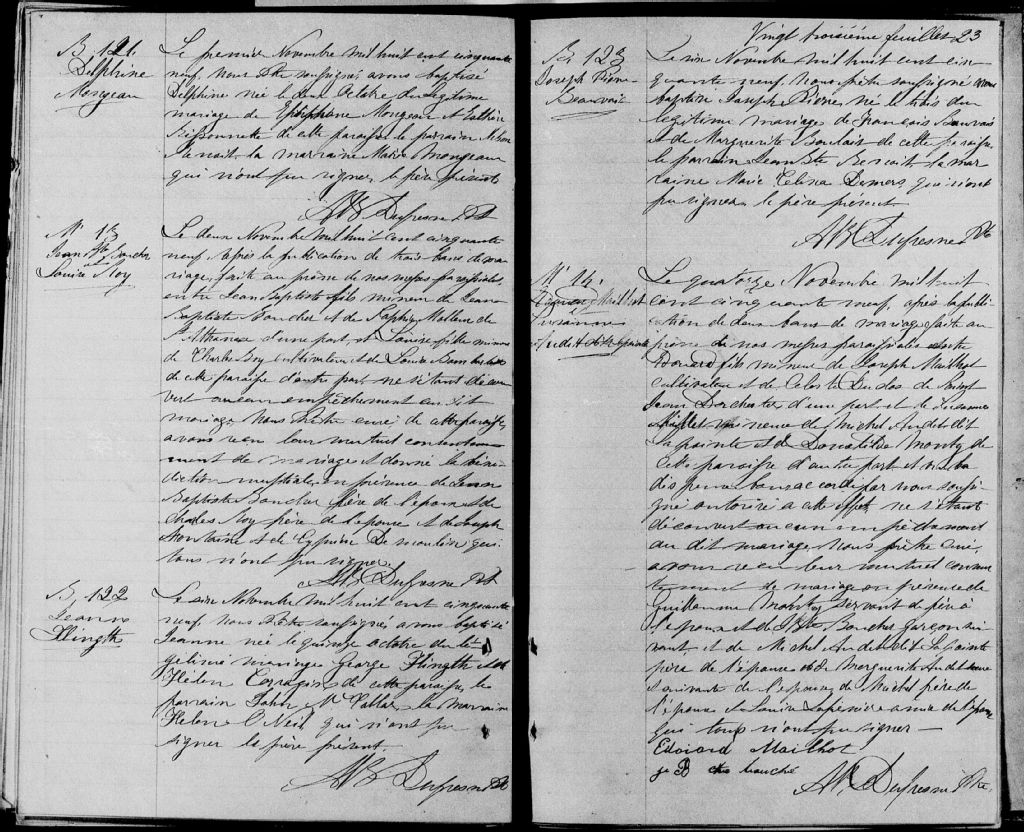 B. 121.
Delphine
Mongeau
Le premier Novembre mil huit cent cinquante
neuf, Nous Ptre soussigné, avons baptisé
Delphine né le deux Octobre du légitime
mariage de Epiphane Mongeau et
Bissonnette de cette paroisse le parrain
Benoit la marraine Marie Mongeau
qui n'ont pu signer, le père présent
Dufresne Pt
M. 13
Jean Bte Boucher
Louise Roy
Le deux Novembre mil huit cent cinquante
neuf, après la publication de trois bans de ma-
riage, faite au prône de nos messes paroissiales,
entre Jean Baptiste fils mineur de Jean
Baptiste Boucher et de Sophie de
St Athanase d'une part, et Louise fille mineure
de Charles Roy cultivateur et de Louise
de cette paroisse d'autre part, ne s'étant décou
vert aucun empêchement au dit
mariage, Nous Prêtre curé de cette paroisse,
avons reçu leur mutuel consente
ment de mariage et donné la béné-
diction nuptiale en présence de Jean
Baptiste Boucher père de l'époux et de
Charles Roy père de l'épouse et de Joseph
Fontaine et de Cyprien Desmoulin qui
tous n'ont pu signer.
Dufresne Pt
B. 122
Jeanne
Flingth
Le six Novembre mil huit cent cinquante
neuf Nous Prêtre soussigné, avons baptisé
Jeanne née le quinze octobre du lé
gitime mariage George Flingth et
Helen de cette paroisse, le
parrain John Mc la marraine
Helen O'Neil qui n'ont pu
signer le père présent.
Dufresne Pt
Vingt troisième feuillet 23
B. 123
Joseph Pierre
Beauvais
Le six Novembre mil huit cent cin
quante neuf, nous prêtre soussigné avons
baptisé Joseph Pierre, né le trois du
légitime mariage de François Beauvais
et de Marguerite Boulais de cette paroisse,
le parrain Jean Bte Benoit la mar
raine Marie Celina Demers, qui n'ont
pu signer le père présent
Dufresne Pte
M. 14.
Mailhot
Le quatorze Novembre mil huit
cent cinquante neuf, après la publi
cation de deux bans de mariage faite au
prône de nos messes paroissiales entre
Edouard fils mineur de Joseph Mailhot
cultivateur et de Celeste de Saint
Jean Dorchester d'une part et de Suzanne
fille mineure de Michel Audet dit
Lapointe et de Domitilde Monty de
cette paroisse d'autre part et vu la
dispense bans accordée par nous soussi
gné autorisé à cet effet ne s'étant
découvert aucun empêchement
au dit mariage Nous prêtre curé,
avons reçu leur mutuel consen
tement de mariage en présence de
Guillaume Monty servant de père à
l'époux et de J. Bte Boucher garçon sui
vant et de Michel Audet dit Lapointe
père de l'épouse et de Marguerite Audet
suivante de l'épouse, de Michel frère de
l'épouse et Louise amie de l'épouse
qui tous n'ont pu signer —
Edouard Mailhot
je B bouché
Dufresne Ptre.